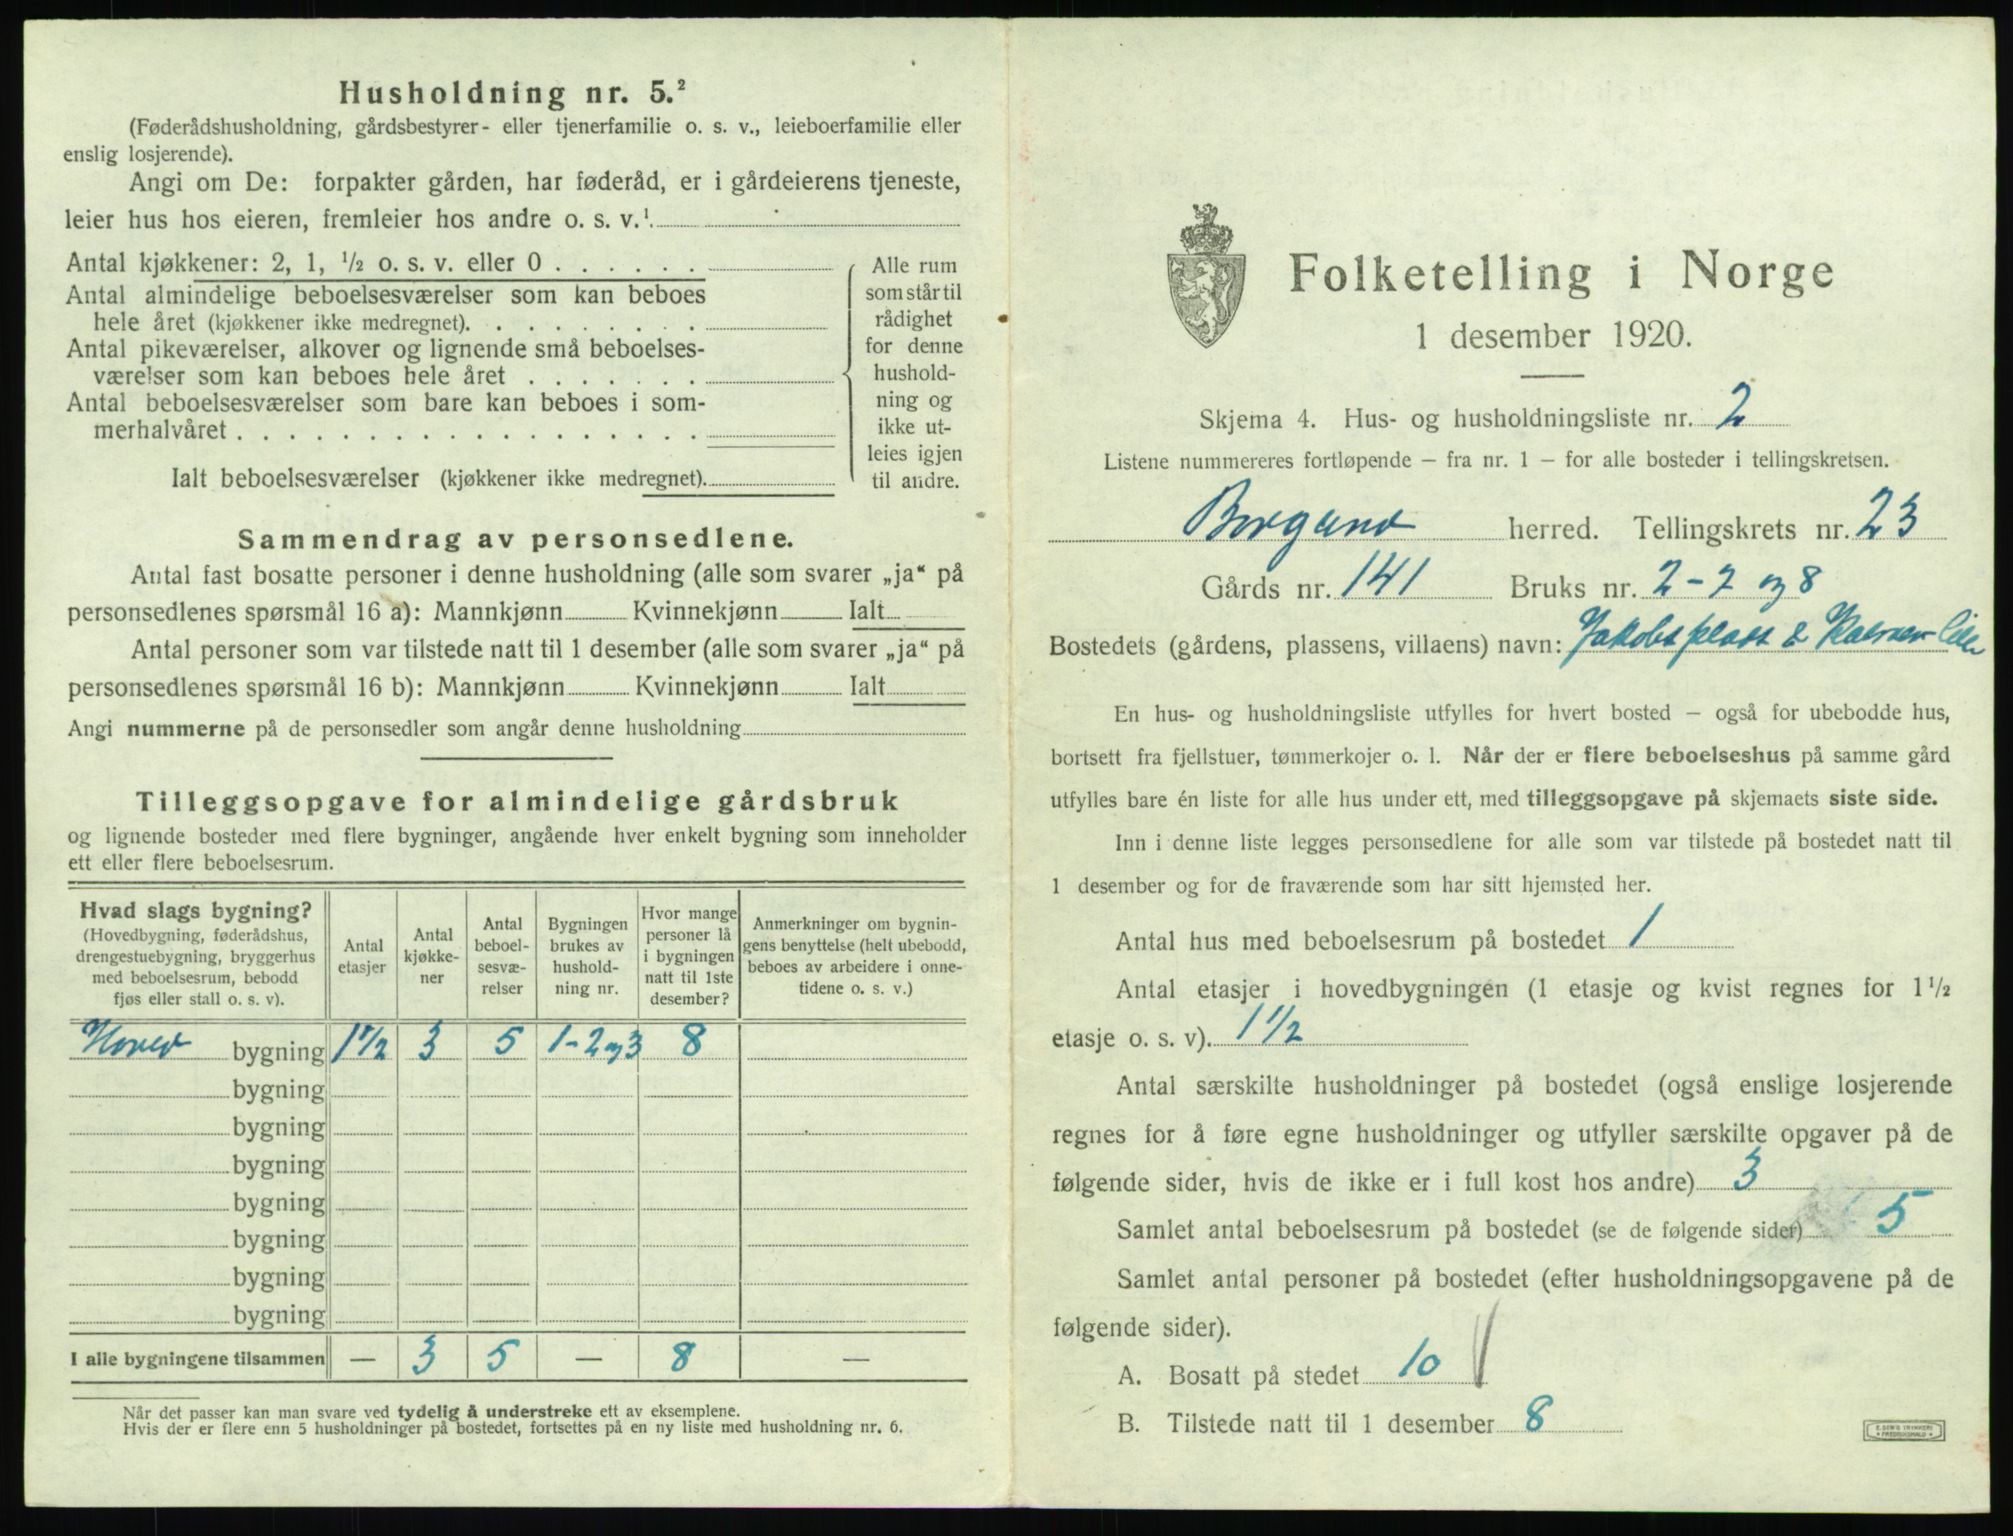 Husholdning nr. 5.²
(Føderådshusholdning, gårdsbestyrer- eller tjenerfamilie o. s. v., leieboerfamilie eller
enslig losjerende).
Angi om De: forpakter gården, har føderåd, er i gårdeierens tjeneste,
leier hus hos eieren, fremleier hos andre o. s. v.¹
Antal kjøkkener: 2, 1, ½ o. s. v. eller 0
Antal almindelige beboelsesværelser som kan beboes
hele året (kjøkkener ikke medregnet).
Antal pikeværelser, alkover og lignende små beboelses-
værelser som kan beboes hele året
Antal beboelsesværelser som bare kan beboes i som-
merhalvåret
Ialt beboelsesværelser (kjøkkener ikke medregnet).
Alle rum
som står til
rådighet
for denne
hushold-
ning og
ikke ut-
leies igjen
til andre.
Sammendrag av personsedlene.
Antal fast bosatte personer i denne husholdning (alle som svarer „ja“ på
personsedlenes spørsmål 16 a): Mannkjønn Kvinnekjønn Ialt
Antal personer som var tilstede natt til 1 desember (alle som svarer „ja“ på
personsedlenes spørsmål 16 b): Mannkjønn Kvinnekjønn Ialt
Angi nummerne på de personsedler som angår denne husholdning
Tilleggsopgave for almindelige gårdsbruk
og lignende bosteder med flere bygninger, angående hver enkelt bygning som inneholder
ett eller flere beboelsesrum.
Hvad slags bygning?
(Hovedbygning, føderådshus,
drengestuebygning, bryggerhus
med beboelsesrum, bebodd
fjøs eller stall o. s. v).
Antal
etasjer
Antal
kjøkke-
ner
Antal
beboel-
sesvæ-
relser
Bygningen
brukes av
hushold-
ning nr.
Hvor mange
personer lå
i bygningen
natt til 1ste
desember?
Anmerkninger om bygnin-
gens benyttelse (helt ubebodd,
beboes av arbeidere i onne-
tidene o. s. v.)
Hoved bygning 1 1/2 3 5 1-2 og 3 8
bygning
bygning
bygning
bygning
bygning
bygning
bygning
I alle bygningene tilsammen — 3 5 — 8 —
Når det passer kan man svare ved tydelig å understreke ett av eksemplene.
Hvis der er flere enn 5 husholdninger på bostedet, fortsettes på en ny liste med husholdning nr. 6.
Folketelling i Norge
1 desember 1920.
Skjema 4. Hus- og husholdningsliste nr. 2
Listene nummereres fortløpende – fra nr. 1 – for alle bosteder i tellingskretsen.
Borgund herred. Tellingskrets nr. 23
Gårds nr. 141 Bruks nr. 2-7 og 8
Bostedets (gårdens, plassens, villaens) navn: Jakobsplass &
En hus- og husholdningsliste utfylles for hvert bosted – også for ubebodde hus,
bortsett fra fjellstuer, tømmerkojer o. l. Når der er flere beboelseshus på samme gård
utfylles bare én liste for alle hus under ett, med tilleggsopgave på skjemaets siste side.
Inn i denne liste legges personsedlene for alle som var tilstede på bostedet natt til
1 desember og for de fraværende som har sitt hjemsted her.
Antal hus med beboelsesrum på bostedet 1
Antal etasjer i hovedbygningen (1 etasje og kvist regnes for 1 ½
etasje o. s. v). 1 1/2
Antal særskilte husholdninger på bostedet (også enslige losjerende
regnes for å føre egne husholdninger og utfyller særskilte opgaver på de
følgende sider, hvis de ikke er i full kost hos andre) 3
Samlet antal beboelsesrum på bostedet (se de følgende sider) 5
Samlet antal personer på bostedet (efter husholdningsopgavene på de
følgende sider).
A. Bosatt på stedet 10
B. Tilstede natt til 1 desember 8